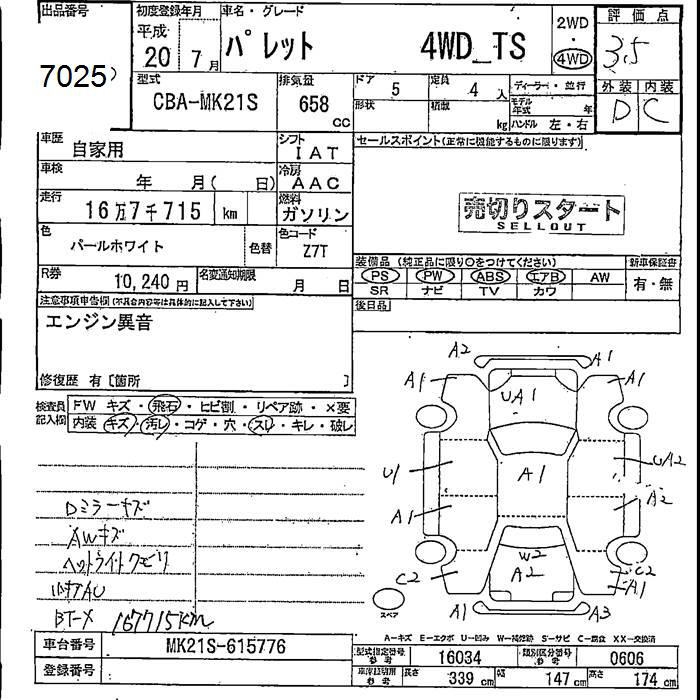 出品番号 初度登録年月 車名・グレード 評価点
7025) 平成 20年 7月 パレット 4WD_TS 2WD・4WD 3.5
型式 CBA-MK21S 排気量 658 CC ドア 5 定員 4人 ディーラー・並行 外装 内装
形状 積載 kg モデル年式 年 ハンドル 左・右 D C
車歴 自家用 シフト IAT セールスポイント(正常に機能するものに限ります)
車検 年 月( 日) 冷房 AAC
走行 16万7千715 km 燃料 ガソリン 売切りスタート
SELLOUT
色 パールホワイト 色替 色コード Z7T
装備品 (純正品に限り○をつけてください) 新車保証書
R券 10,240円 名変通知期限 月 日 PS PW ABS エアB AW 有・無
SR ナビ TV カワ
注意事項申告欄(不具合内容等は具体的に記入して下さい) 後日品
エンジン異音
修復歴 有[箇所 ]
検査員記入欄 FW キズ・飛石・ヒビ割・リペア跡・×要
内装 キズ・汚レ・コゲ・穴・スレ・キレ・破レ
A2 A1
A1 A1
UA1
U1 A1 UA2
A1 A2
W2
C2 A2 C2
A1
A1 A3
スペア
Dミラーキズ
AWキズ
ヘッドライトクモリ
BTーX 167715km
A-キズ E-エクボ U-凹み W-補修跡 S-サビ C-腐食 XX-交換済
車台番号 MK21S-615776 型式指定番号 参考 16034 類別区分番号 参考 0606
登録番号 長さ 339 cm 幅 147 cm 高さ 174 cm